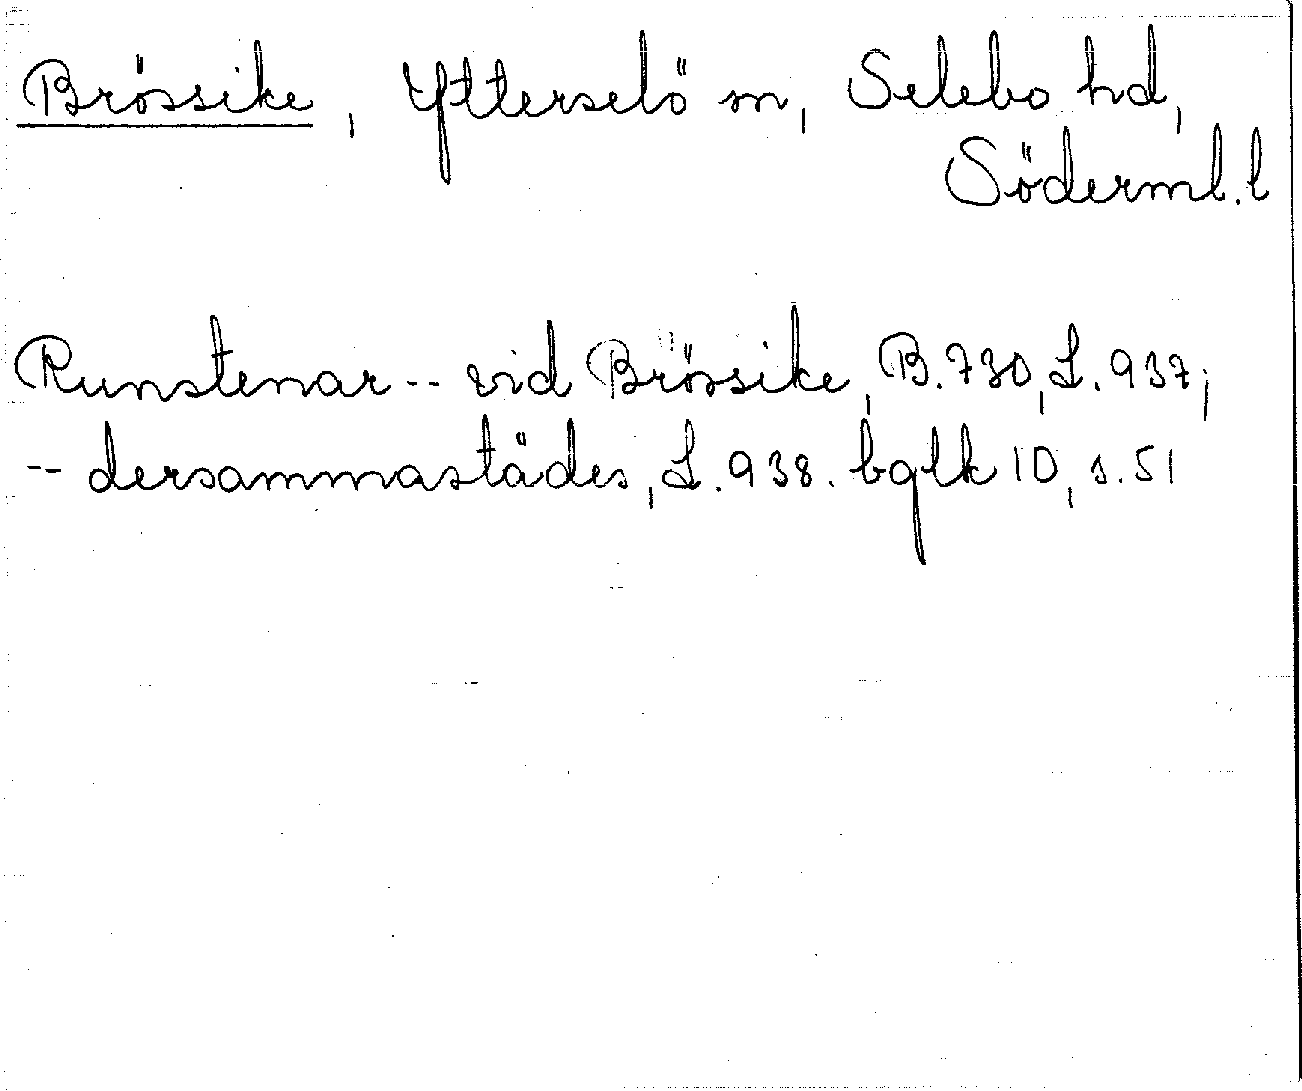 Brössike, Ytterselö sn, Selebo hd,
Söderml.l
Runstenar -- vid Brössike, B.730, L.937;
-- dersammastädes, L.938. bglk 10, s.51